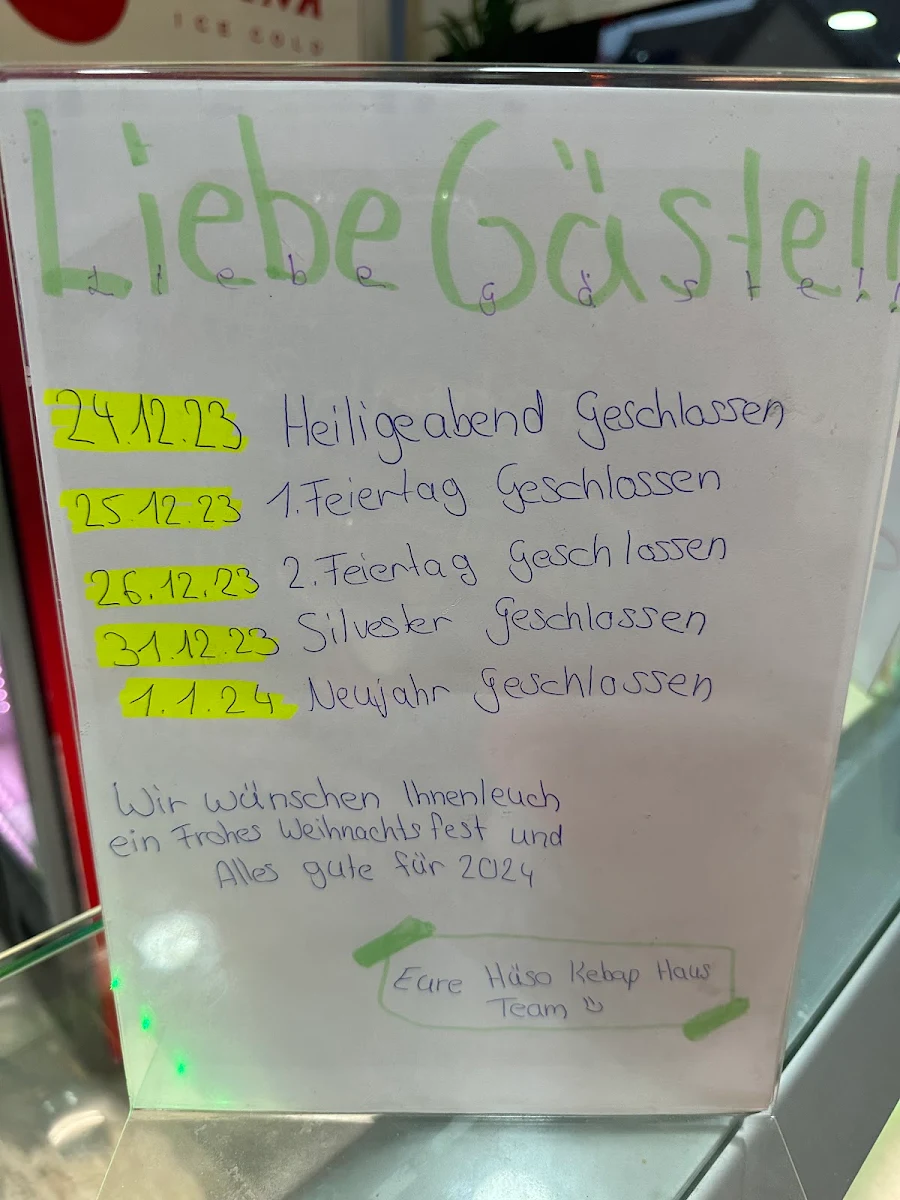 ICE COLD
Liebe Gäste!!
Liebe gäste!!
24.12.23 Heiligeabend Geschlassen
25.12.23 1.Feiertag Geschlossen
26.12.23 2.Feiertag Geschlossen
31.12.23 Silvester Geschlossen
1.1.24 Neujahr Geschlossen
Wir wünschen Ihnen/euch
ein Frohes Weihnachtsfest und
Alles gute für 2024
Eure Häso Kebap Haus
Team